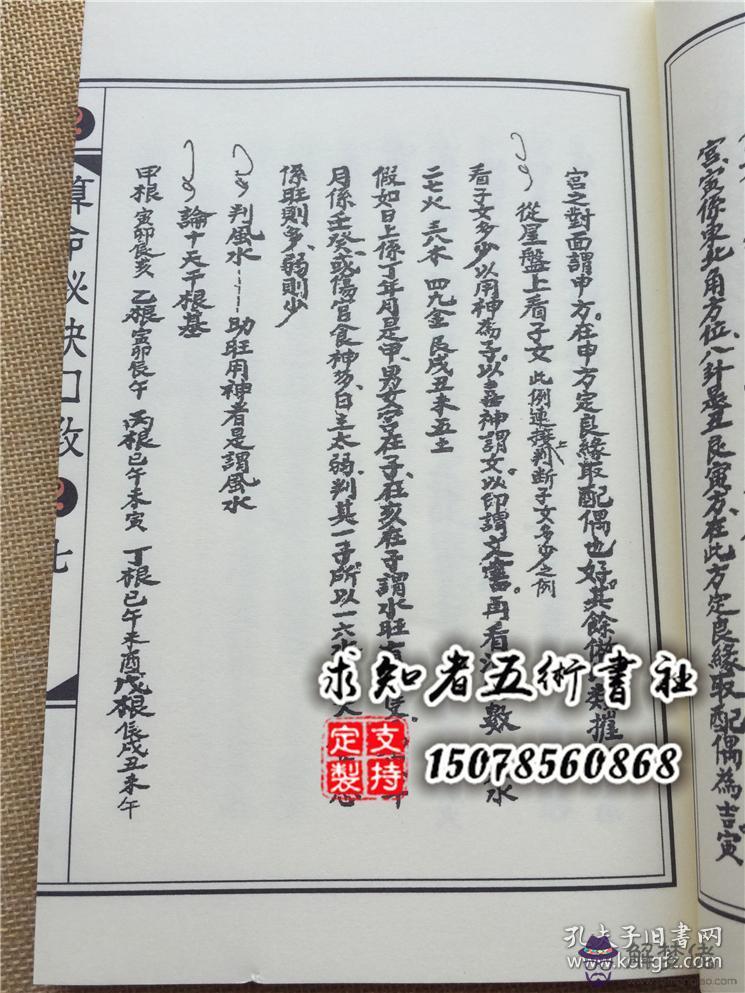 宮寅係東北角方位、八卦是丑艮寅方、在此方定良緣取配偶為吉寅
宮之對面謂申方。在申方定良緣取配偶也好。其餘
從星盤上看子女 此例連接上判斷子女多少之例
看子女多少以用神為子。以喜神謂女以印謂文書。再看 數 水
二七火 三八木 四九金 艮戌丑未五土
假如日上係丁年月是甲、男女宮在子、在亥在子謂水旺
月係壬癸或傷官食神多、日主太弱、判其一子所以一六水
係旺則多、弱則少
判風水……助旺用神者是謂風水
論十天干根基
甲根寅卯辰亥 乙根寅卯辰午 丙根巳午未寅 丁根巳午未酉 戊根辰戌丑未午
算命秘訣口教 七
求知者五術書社
支持定製
15078560868
孔夫子旧書网
www.kongfz.com
解夢佬